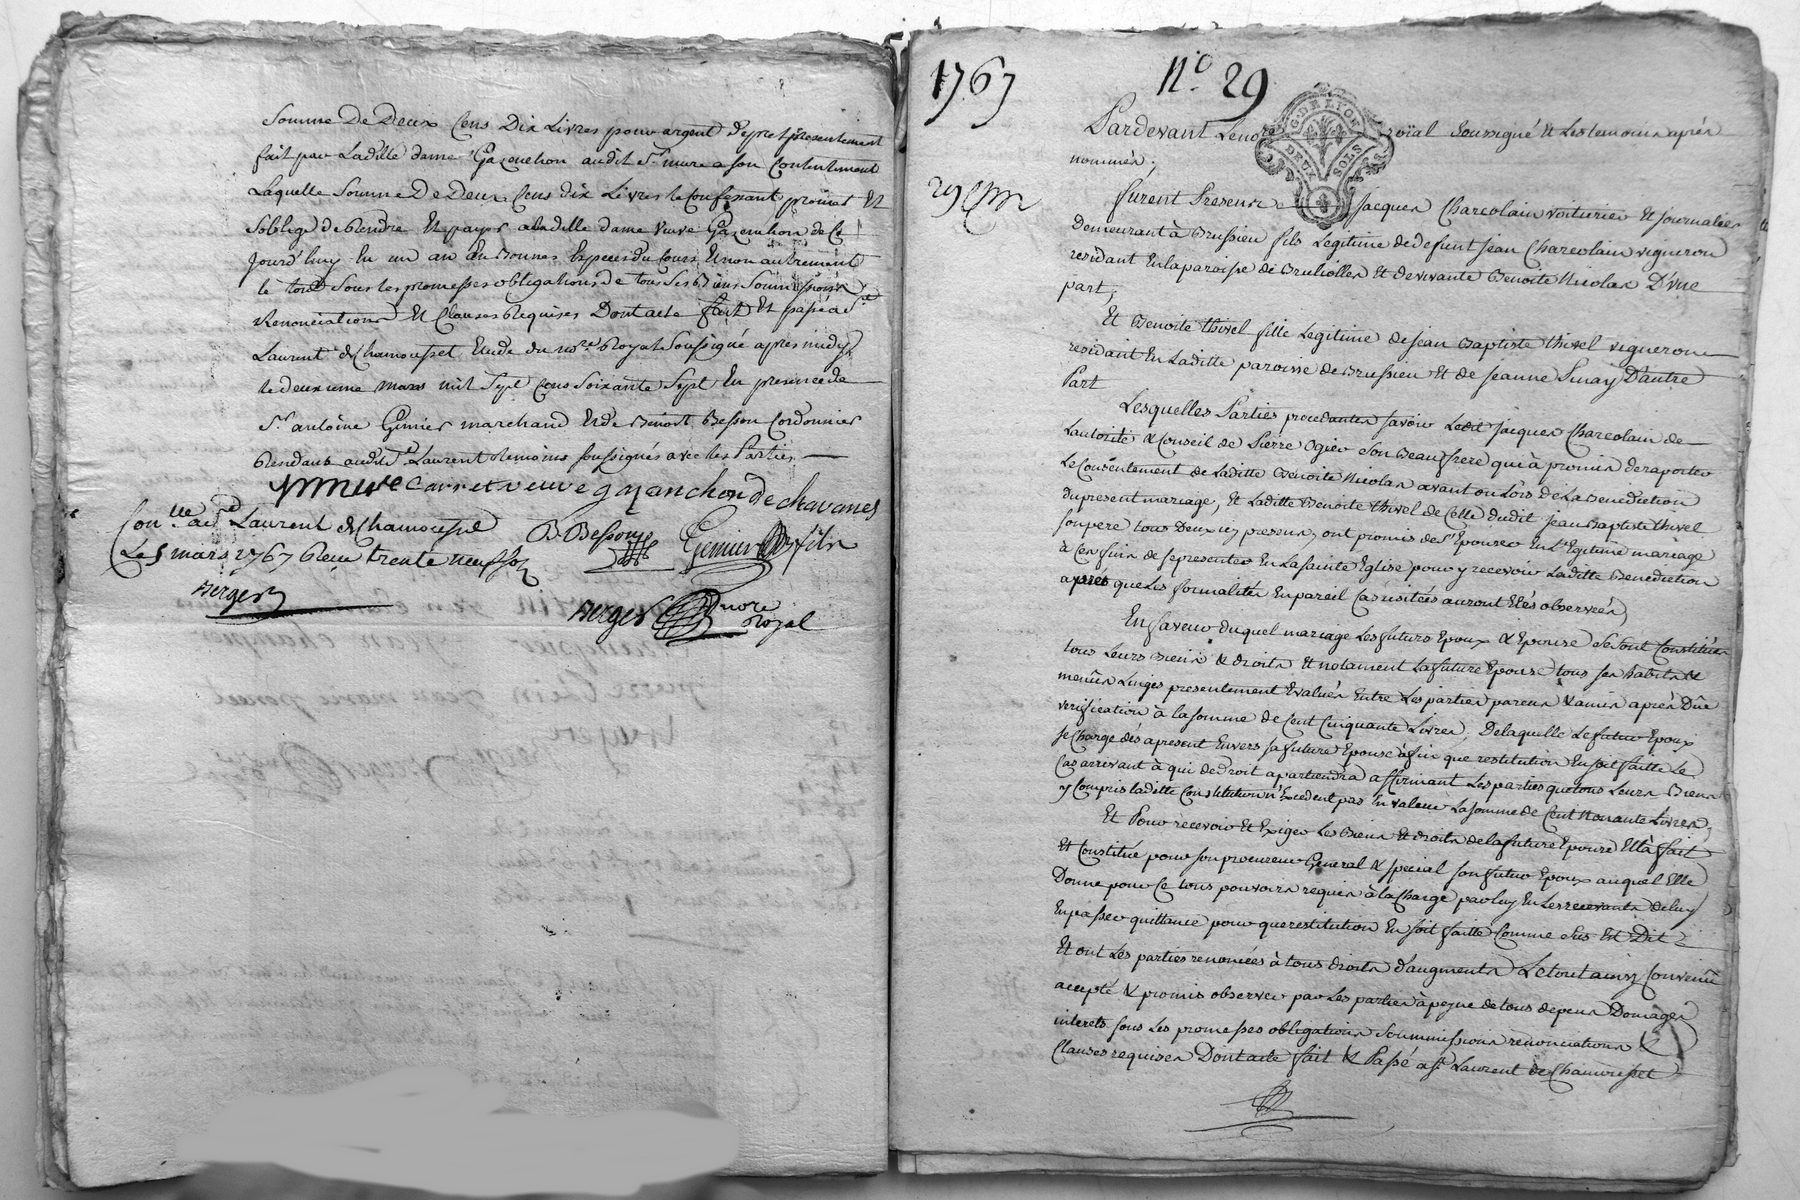 Somme De Deux Cens Dix Livres pour argent de pret presentement
fait par Laditte dame Gazanchon audit Sr. mure a son Contentement
Laquelle Somme De Deux Cens dix Livres le Confessant promet Et
Soblige de Rendre Et payer a laditte dame veuve Gazanchon de Ce
jourd'huy En un an En Bonnes Especes du Cours Et non autrement
le tout Sous les promesses obligations de tous ses Biens Soumissions
Renonciations Et Clauses Requises Dont acte fait Et passé a St
Laurent de Chamousset Etude du nore Royal Soussigné apres midy
le deuxieme mars mil Sept Cens Soixante Sept En presence de
Sr. antoine Genier marchand Et de Benoit Besson Cordonnier
Residans audit St Laurent temoins soussignés avec les Parties
mure Carret veuve gazanchon de chavanes
Conlle a St Laurent de Chamousset B. Besson Genier fils
Le 5 mars 1767 Reçu trente neuf sols
Berger
Berger nore
Royal
1767 No. 29
G. DE LION
DEUX SOLS
Pardevant Le nore roïal Soussigné Et Les temoins après
nommés;
29
furent Presens Jacques Charcolain voiturier Et journalier
Demeurant à Brussieu fils Legitime de defunt jean Charcolain vigneron
residant En la paroisse de Brulioles Et de vivante Benoite Nicolas D'une
part;
Et Benoite thivel fille Legitime de jean Baptiste thivel vigneron
residant En Laditte paroisse de Brussieu Et de jeanne Pinay D'autre
Part
Lesquelles Parties procedantes savoir Ledit jacques Charcolain de
L'autorité & Conseil de Pierre Ogier son Beaufrere qui à promis de raporter
Le Consentement de Laditte Benoite Nicolas avant ou Lors de La Benediction
du present mariage, Et Laditte Benoite thivel de Celle dudit jean Baptiste thivel
son pere tous Deux icy presens, ont promis de s'Epouser En L'Egitime mariage
à Ces fins de se presenter En La sainte Eglise pour y recevoir Laditte Benediction
après que Les formalités En pareil Cas usitées auront Etés observées,
En faveur duquel mariage Les futurs Epoux & Epouse se sont Constitués
tous Leurs Biens & droits Et notament La future Epouse tous ses habits &
menûs Linges presentement Evalués Entre Les parties parens & amis après Dûe
verification à la somme de Cent Cinquante Livres, De laquelle Le futur Epoux
se Charge dés apresent Envers sa future Epouse àfin que restitution En soit faitte Le
Cas arrivant à qui de Droit apartiendra affirmant Les parties que tous Leurs Biens
y Compris laditte Constitution n'Excedent pas En valeur La somme de Cent Nonante Livres,
Et Pour recevoir Et Exiger Les Biens Et droits de la future Epouse Ella fait
Et Constitué pour son procureur General & special son futur Epoux auquel Elle
Donne pour Ce tous pouvoirs requis à la Charge par luy En Les recevants de luy
En passer quittance pour que restitution En soit faitte Comme sus Est Dit;
Et ont Les parties renoncées à tous droits d'augments Le tout ainsy Convenû
accepté & promis observer par Les parties à peyne de tous depens Domages
interets sous Les promesses obligations Soummissions renonciations &
Clauses requises Dont acte fait & Passé a st Laurent de Chamousset